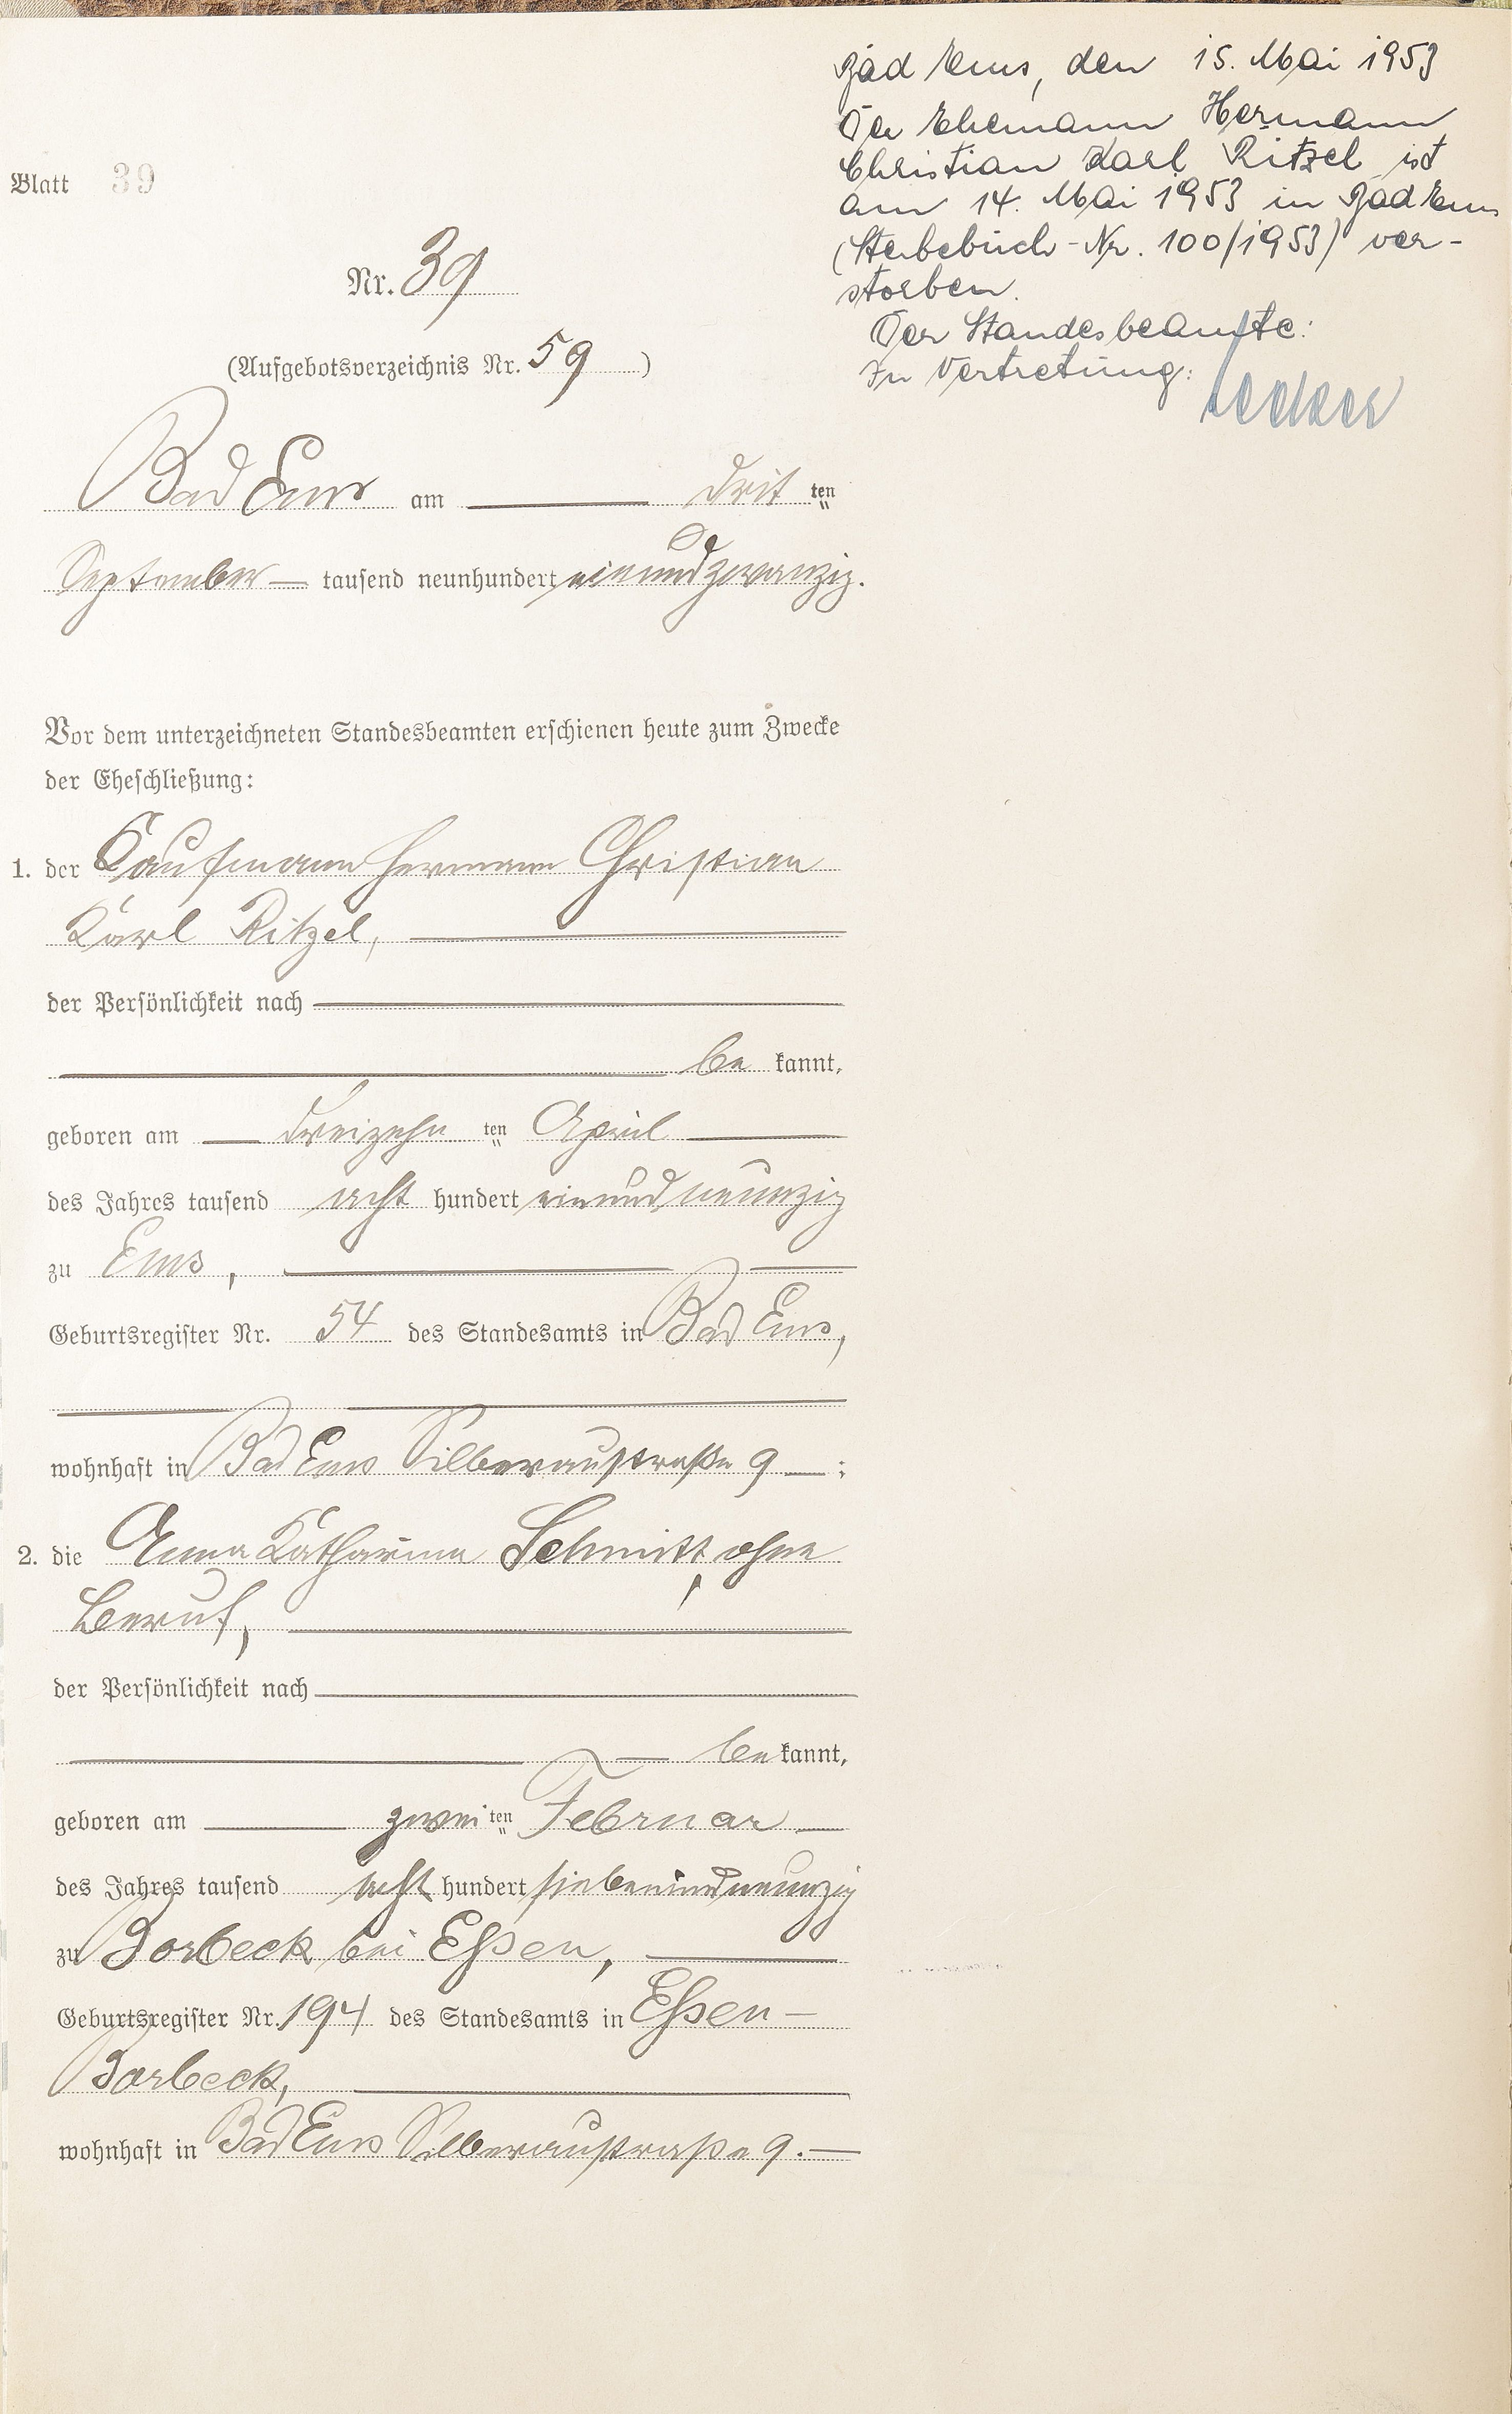 Bad Ems, den 15. Mai 1953
Der Ehemann Hermann
Christian Karl Ritzel ist
am 14. Mai 1953 in Bad Ems
(Sterbebuch-Nr. 100/1953) ver-
storben.
Der Standesbeamte:
In Vertretung:
Blatt 39
Nr. 39
(Aufgebotsverzeichnis Nr. 59)
Bad Ems am drit ten
September tausend neunhundert einundzwanzig.
Vor dem unterzeichneten Standesbeamten erschienen heute zum Zwecke
der Eheschließung:
1. der Kaufmann Hermann Christian
Karl Ritzel,
der Persönlichkeit nach
be kannt,
geboren am dreizehn ten April
des Jahres tausend acht hundert einundneunzig
zu Ems,
Geburtsregister Nr. 54 des Standesamts in Bad Ems,
wohnhaft in Bad Ems Silberaustraße 9 ;
2. die Anna Katharina Schmitt, ohne
Beruf,
der Persönlichkeit nach
be kannt,
geboren am zwei ten Februar
des Jahres tausend acht hundert siebenundneunzig
zu Borbeck bei Eßen,
Geburtsregister Nr. 194 des Standesamts in Eßen-
Borbeck,
wohnhaft in Bad Ems Silberaustraße 9.